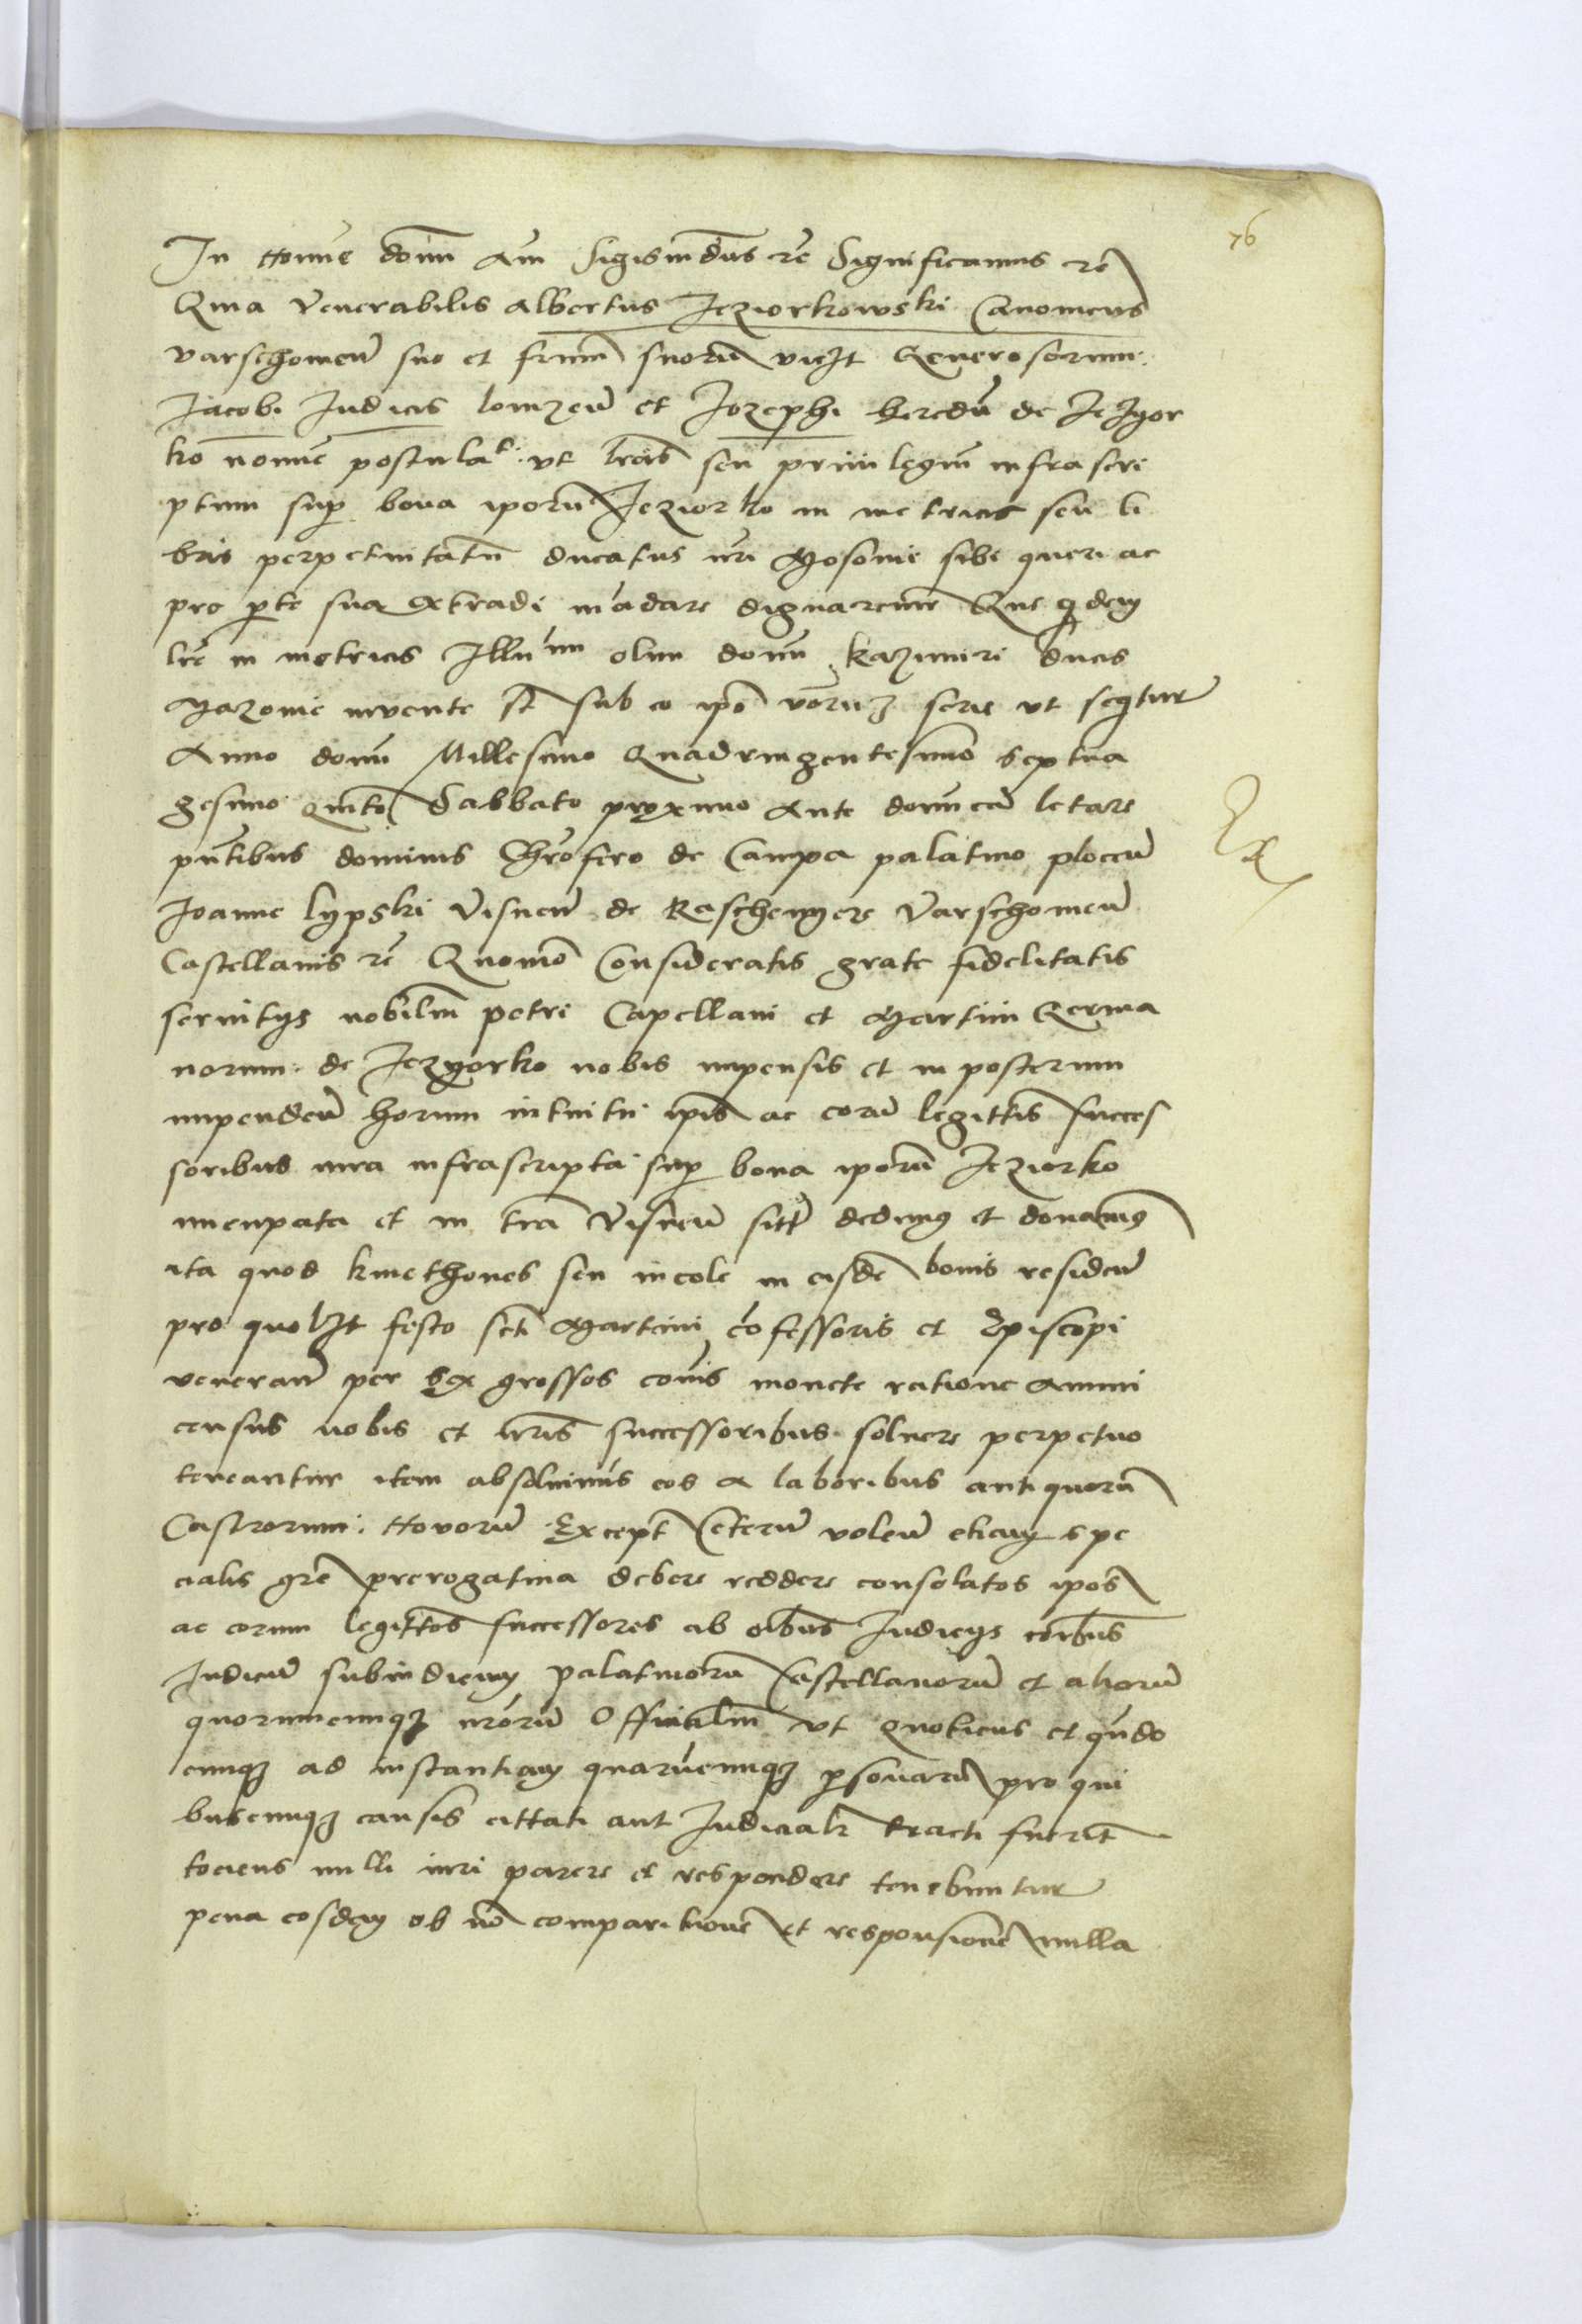 76
In Nomīe domī Am̄ Sigismūdus rē Significamus rē
Quia Venerabilis Albertus Jeziorkowski Canonicus
varschoviēn̄ suo et fr̄um suorū vicʒt Generosorum
Jacobi Judicis lomzen̄ et Jozephi heredū de Jeʒyor
ko nomīe postulat̄ ut l̄ras seu privilegiū infrascri
ptum sup̱ bona ip̄orū Jeziorko in metricis seu li
bris perpetuitatū ducatus n̄ri Masovie sibi queri ac
pro ꝑte sua extradi mādare dignaremur Que q̄dem
l̄re in metricis Illumi olim domī Kazimiri ducis
Mazovie invente st̄ sub eo ip̄o v̄borū serie ut seq̄tur
Anno domī Millesimo Quadringentesimo septua
gesimo Quīto Sabbato proximo Ante domīcā letare
pn̄tibus dominis Chr̄ofero de Campa palatino plocen̄
Joanne lypski Visnen̄ de Raschenyecz Varschovien̄
Castellanis rē Quomō Consideratis grate fidelitatis
servitys nobiliū petri Capellani et Martini Germa
norum de Jezyorko nobis impensis et in posterum
impendēn̄ horum intuitu ip̄is ac eorū legittīs succes
soribus iura infrascripta sup̱ bona ip̄orū Jeziorko
nuncupata et in tr̄a Visnen̄ sitt̄ dedimus et donamus
ita quod kmethones seu incole in eisdē bonis residēn̄
pro quolʒt festo sc̄ti Martini cōfessoris et Episcopi
venerān̄ per sex grossos cōis monete ratione Annui
census nobis et n̄ris successoribus solvere perpetuo
teneantur item absolvimus eos a laboribus antiquorū
Castrorum Novorū Except̄ Ceterū volen̄ eticam spe
cialis gr̄e prerogativa debere reddere consolatos ip̄os
ac eorum legittōs successores ab oībus Judicys cōibus
Judicū subiudicum palatinorū Castellanorū et aliorū
quorumcumqʒ n̄rorū Officialiū ut quoticus et qn̄do
cumqʒ ad instantiam quarūcumqʒ ꝑsonarū pro qui
buscumqʒ causis cittati aut Judicialr̄ tracti fuerīt
tociens nulli iuri parere et respondere tenebuntur
pena eosdem ob nō comparitionē et responsionē nulla